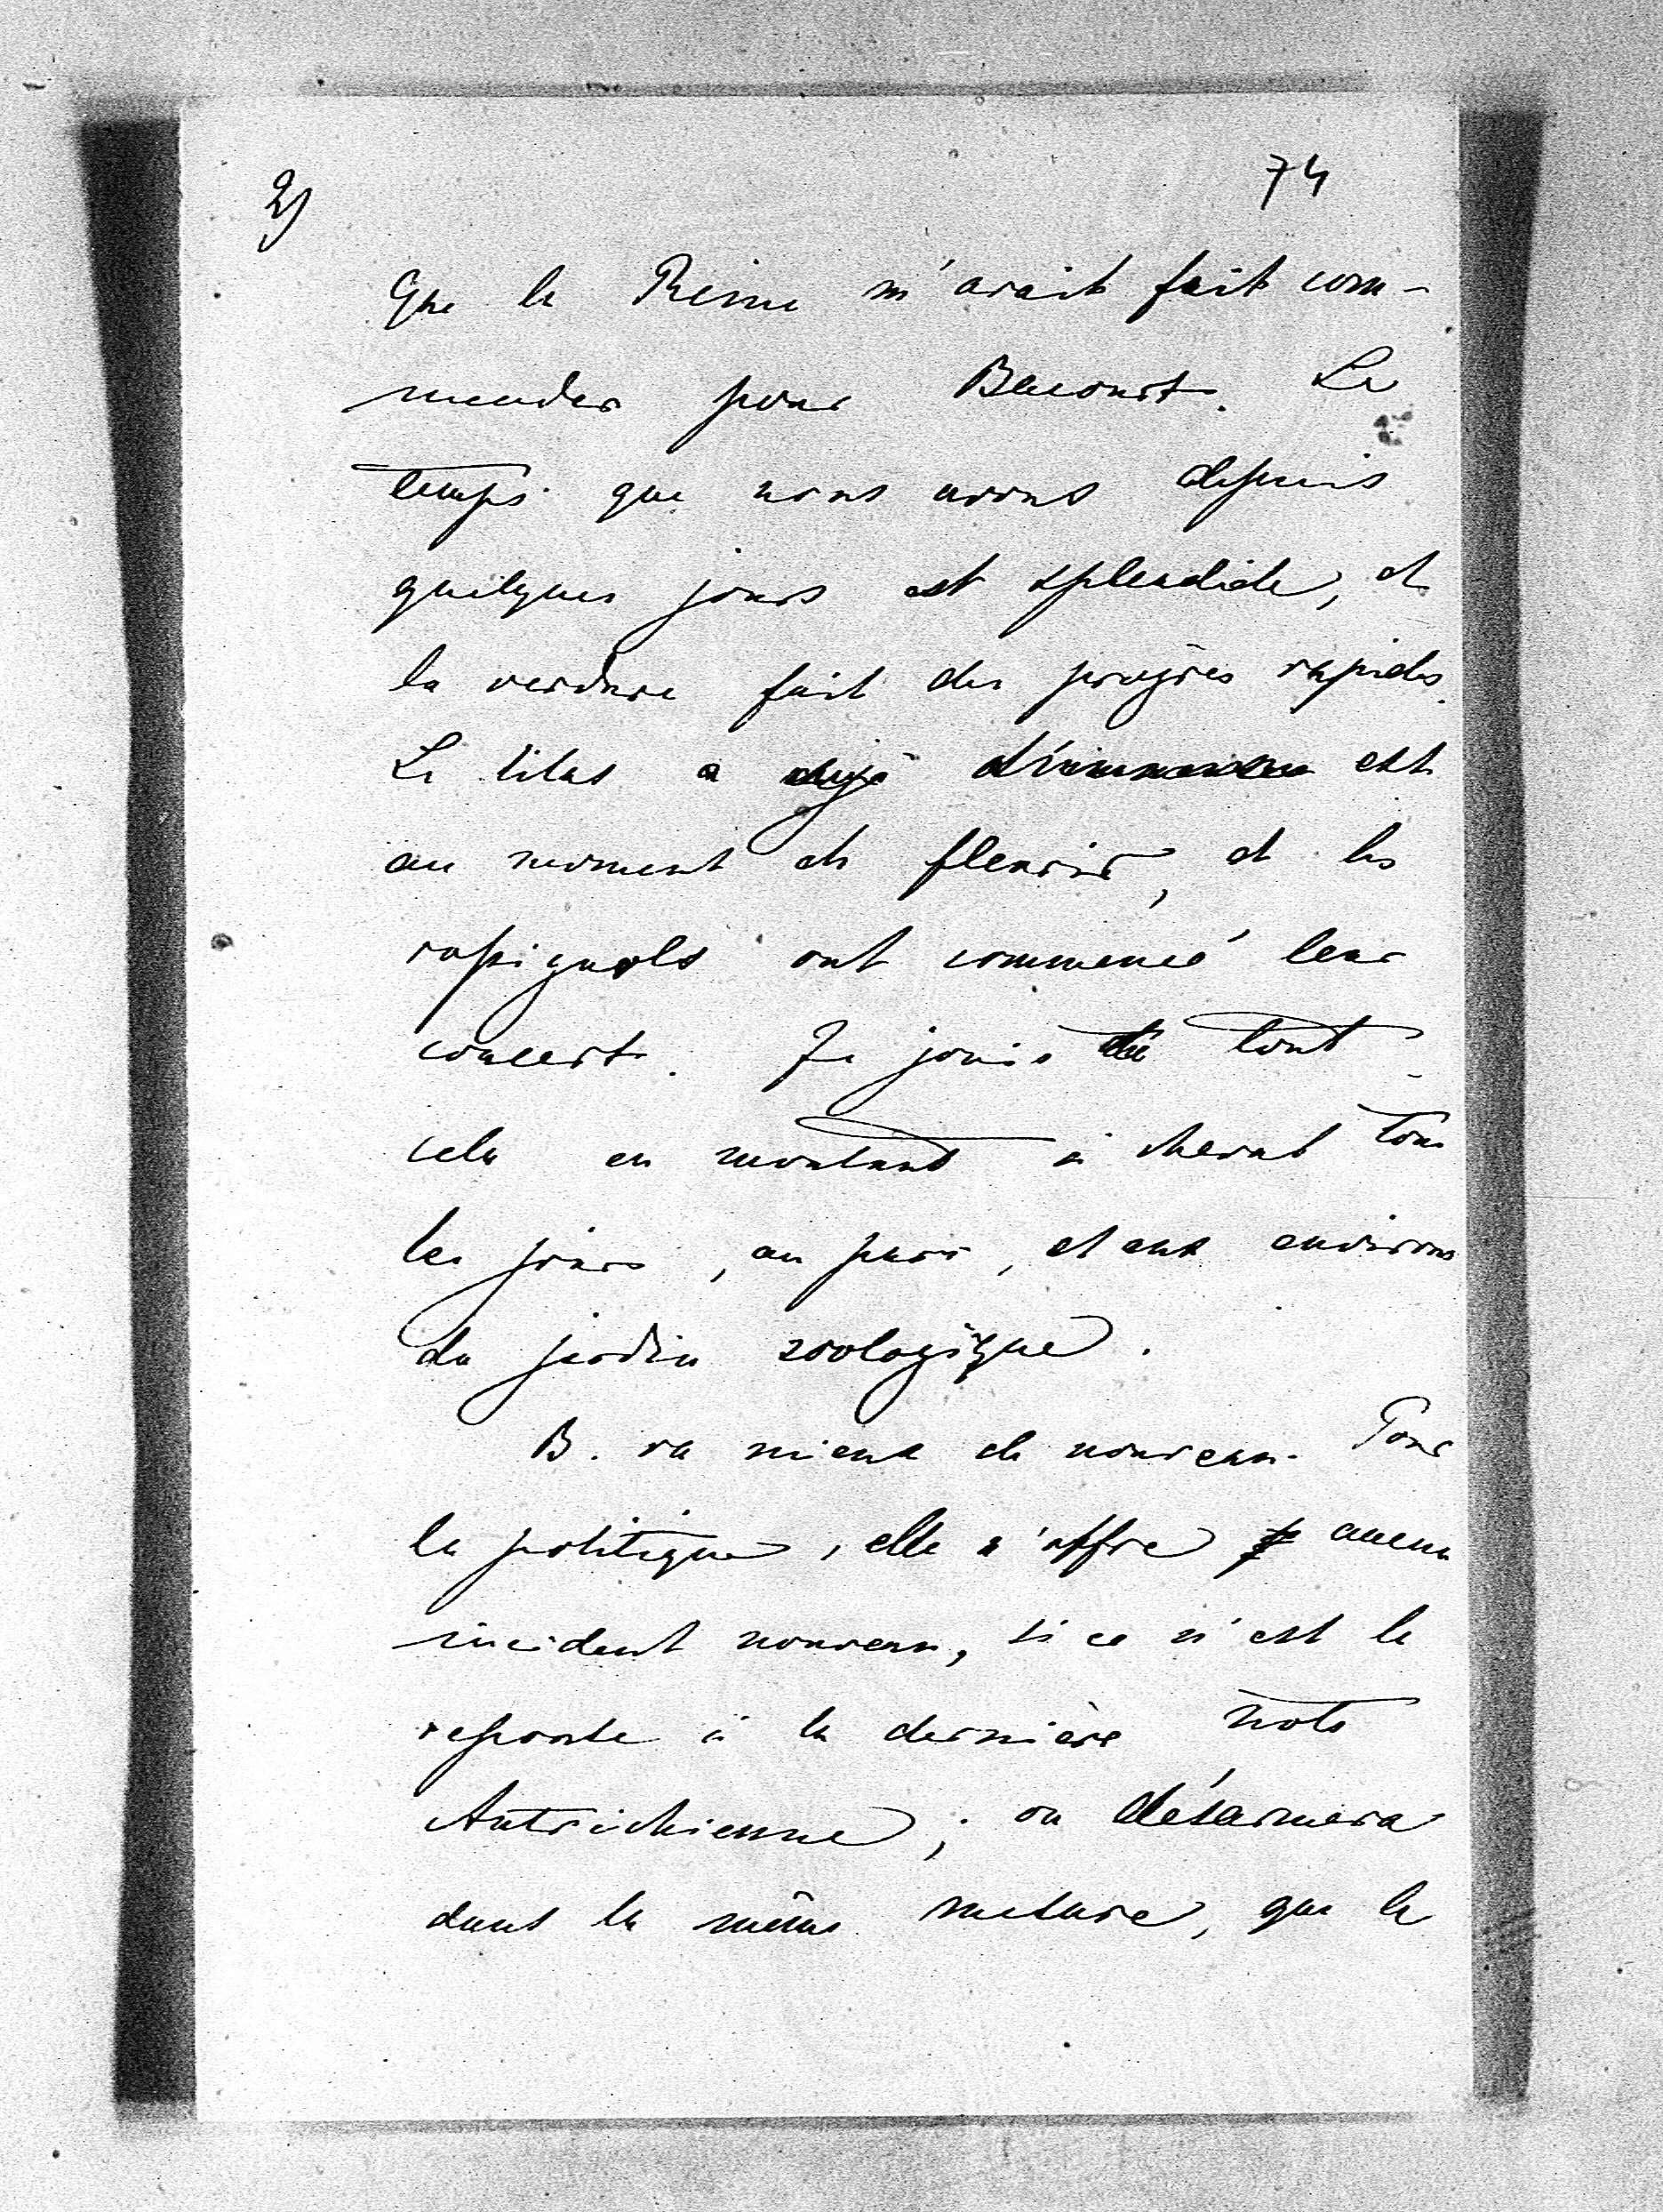 2)
74
que la Reine m'avait fait com-
mander pour Bencourt. Le
temps que nous avons depuis
quelques jours est splendide, et
la verdure fait des progrès rapides.
Le lilas a déjà est
au moment de fleurir, et les
rossignols ont commencé leur
concert. Je jouis de tout
cela en montant à cheval tous
les jours, au parc, et aux environs
du jardin zoologique.
B. va mieux de nouveau. Pour
la politique, elle n'offre aucun
incident nouveau, si ce n'est la
reponse à la dernière note
Autrichienne; on désarmera
dans la même mesure, que le